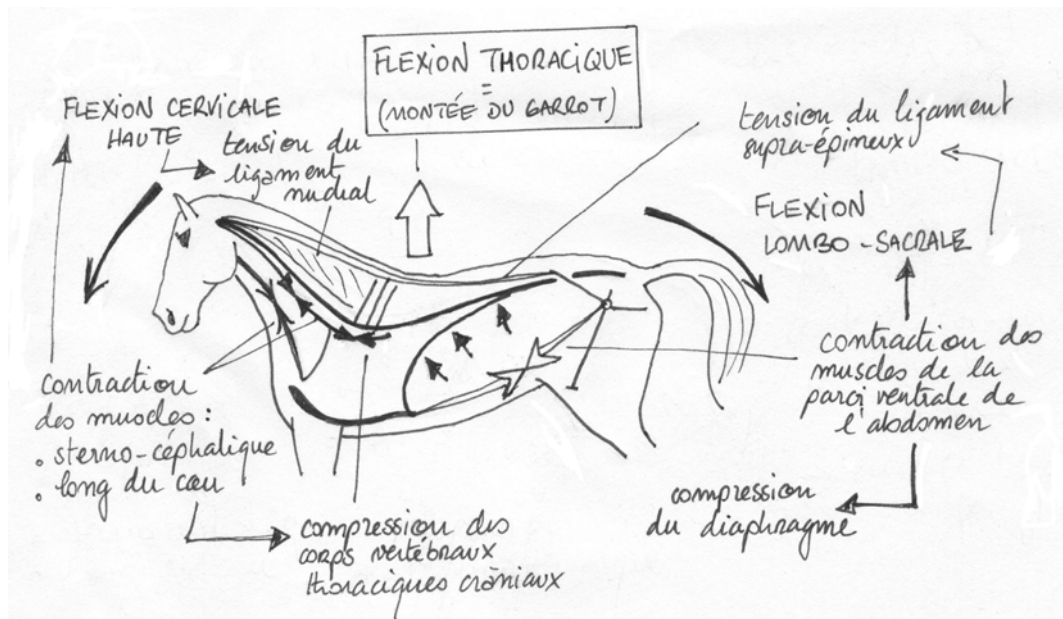 FLEXION THORACIQUE
=
(MONTÉE DU GARROT)
FLEXION CERVICALE
HAUTE
tension du
ligament
nuchal
tension du ligament
supra-épineux
FLEXION
LOMBO-SACRALE
contraction
des muscles :
• sterno-céphalique
• long du cou
contraction des
muscles de la
paroi ventrale de
l'abdomen
compression
du diaphragme
compression des
corps vertébraux
thoraciques crâniaux